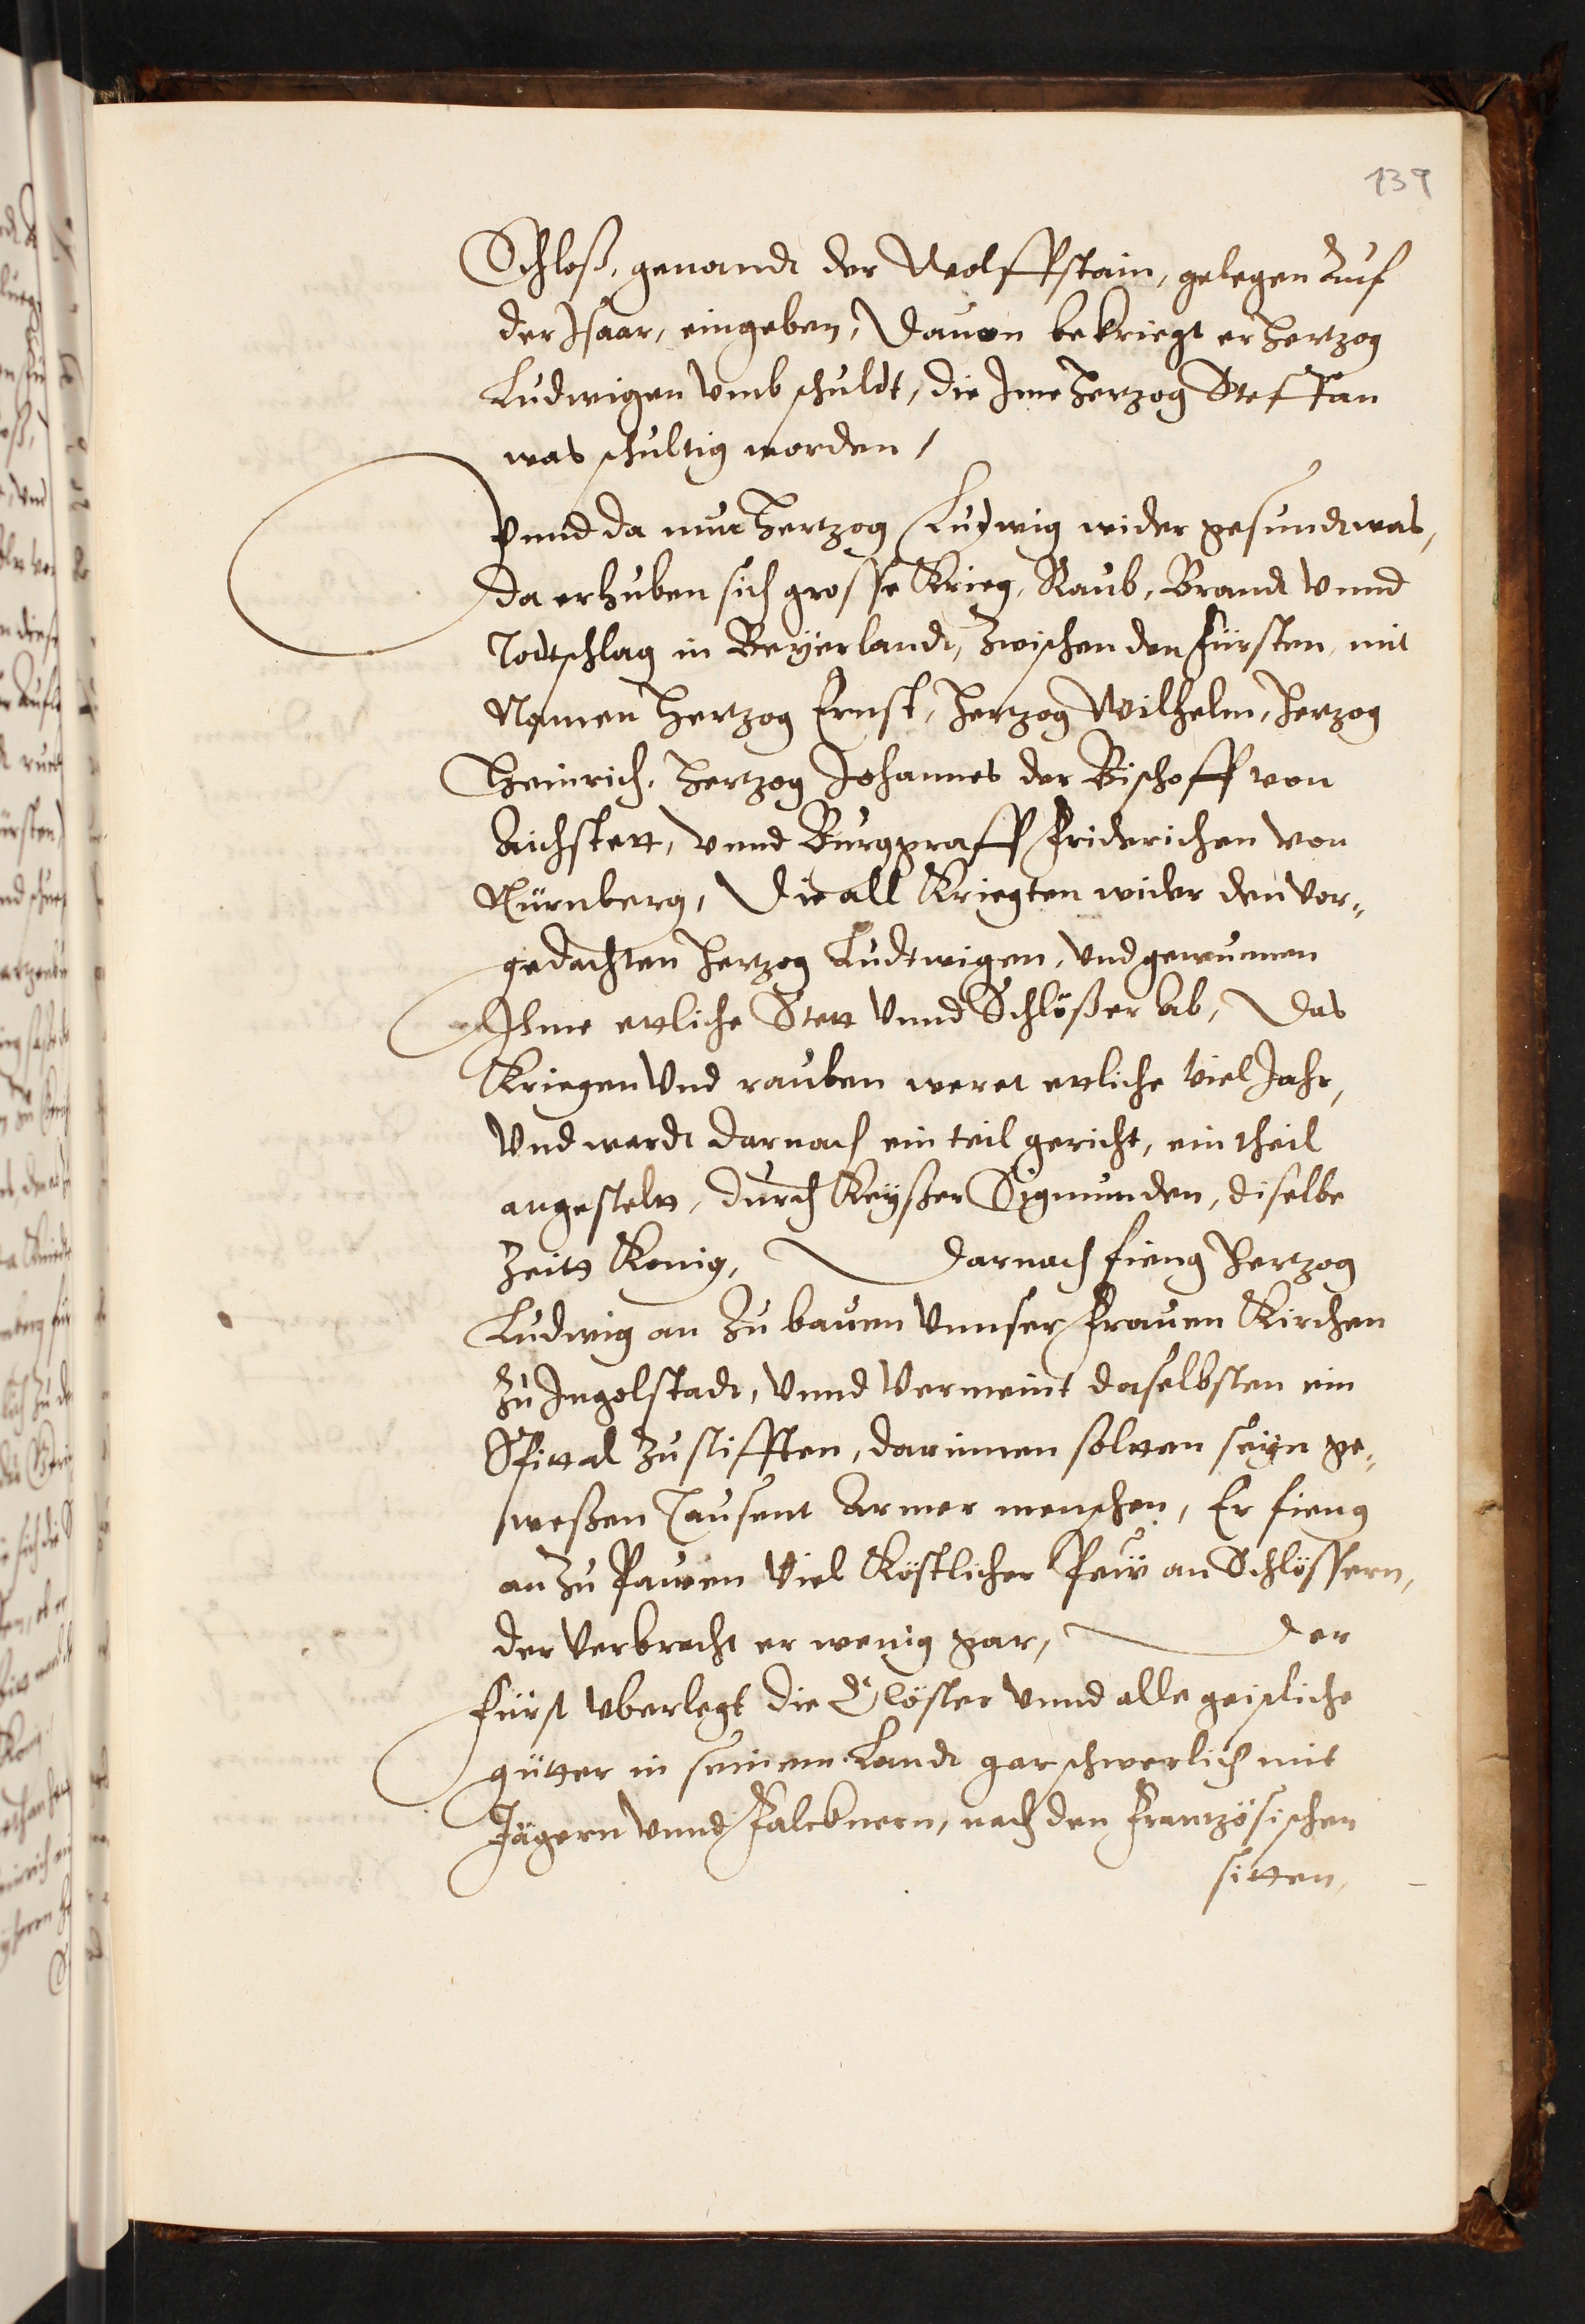 139
Schloß, genandt der Wolffstain, gelegen auf
der Isaar, eingeben, Dauon bekriegt er Hertzog
Ludwigen vmb schuldt, die Ime Herzog Steffan
was schultig worden,
Vnnd da nun Hertzog Ludwig wider gesundt was,
da erhuben sich grosse Krieg, Raub, Brandt vnnd
Todtschlag in Beyerlandt, zwischen den Fürsten, mit
Namen Hertzog Ernst, Hertzog Wilhelm, Herzog
Heinrich, Hertzog Johannes der Bischoff von
Aichstett, vnnd Burggraff Friderichen von
Nürnberg, Die all Kriegten wider den vor„
gedachten Herzog Ludtwigen, vnd gewunnen
Ihme ettliche Stett vnnd Schlößer ab, Das
Kriegen vnd rauben weret ettliche viel Jahr,
vnd wardt darnach ein teil gericht, ein theil
angestelt, durch Keyßer Sigmunden, diselbe
Zeitt Konig, Darnach fieng Hertzog
Ludwig an zu bauen vnnser Frauen Kirchen
zu Ingolstadt, vnnd vermeint daselbsten ein
Spittal zu stifften, darinnen soltten seyn ge„
weßen Tausent Armer menschen, Er fieng
an zu Pauen viel Köstlicher Peü an Schlössern,
der verbracht er wenig gar, Der
Fürst vberlegt die Clöster vnnd alle geistliche
gütter in seinem Landt gar schwerlich mit
Jägern vnnd Falcknern, nach den Frantzösischen
sitten,